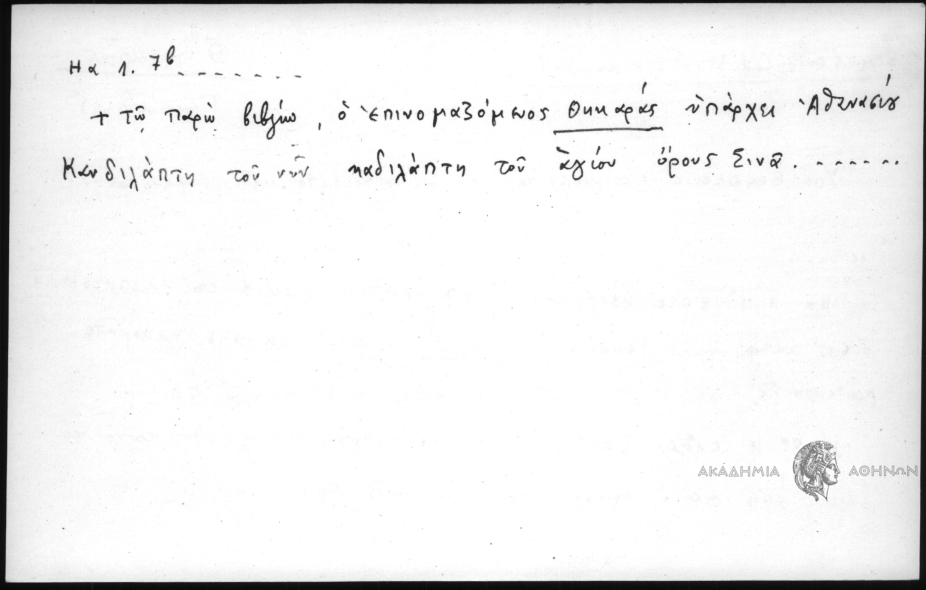 Ηα 1. 7β.......
+ τῶ παρὼ βιβλίω, ὁ ἐπινομαζόμενος Θηκαράς ὑπάρχει Ἀθανασίου
Κανδιλάπτη τοῦ νῦν καδιλάπτη τοῦ ἁγίου ὄρους Σινᾶ.......
ΑΚΑΔΗΜΙΑ ΑΘΗΝΩΝ